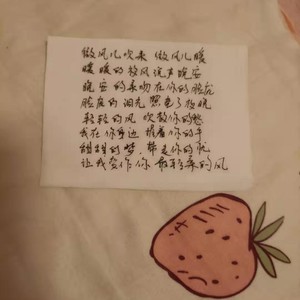 微风儿吹来 微风儿暖
暖暖的校风说声晚安
晚安的亲吻在你的脸庞
脸庞的泪光照亮了
轻轻的风 吹散你的愁
我在你身边 握着你的手
甜甜的梦，带走你的忧
让我变作你 最的风